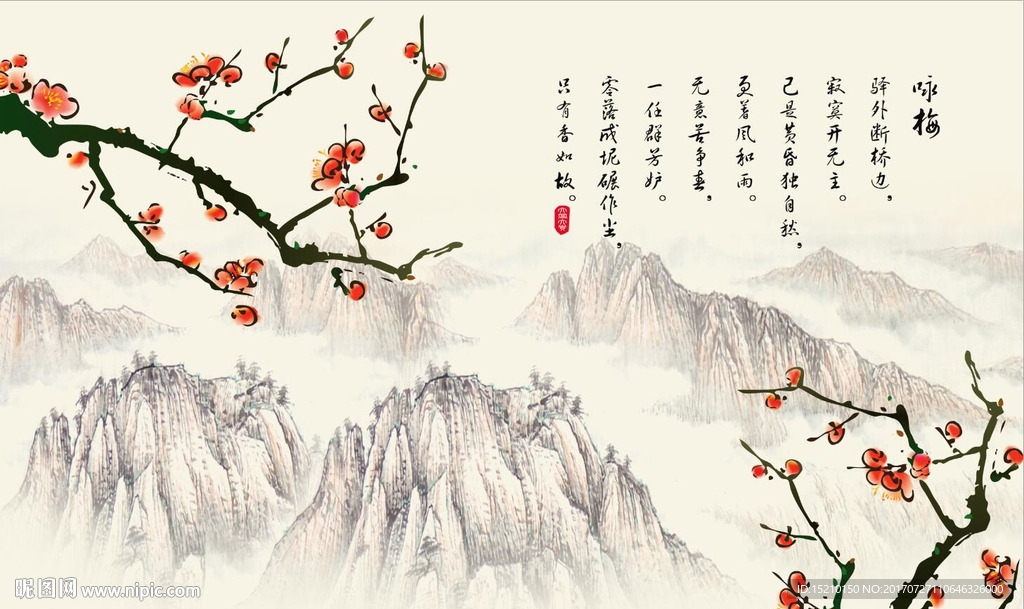 咏梅
驿外断桥边，
寂寞开无主。
已是黄昏独自愁，
更着风和雨。
无意苦争春，
一任群芳妒。
零落成泥碾作尘，
只有香如故。
昵图网 www.nipic.com
ID:15210150 NO:20170727110646326000